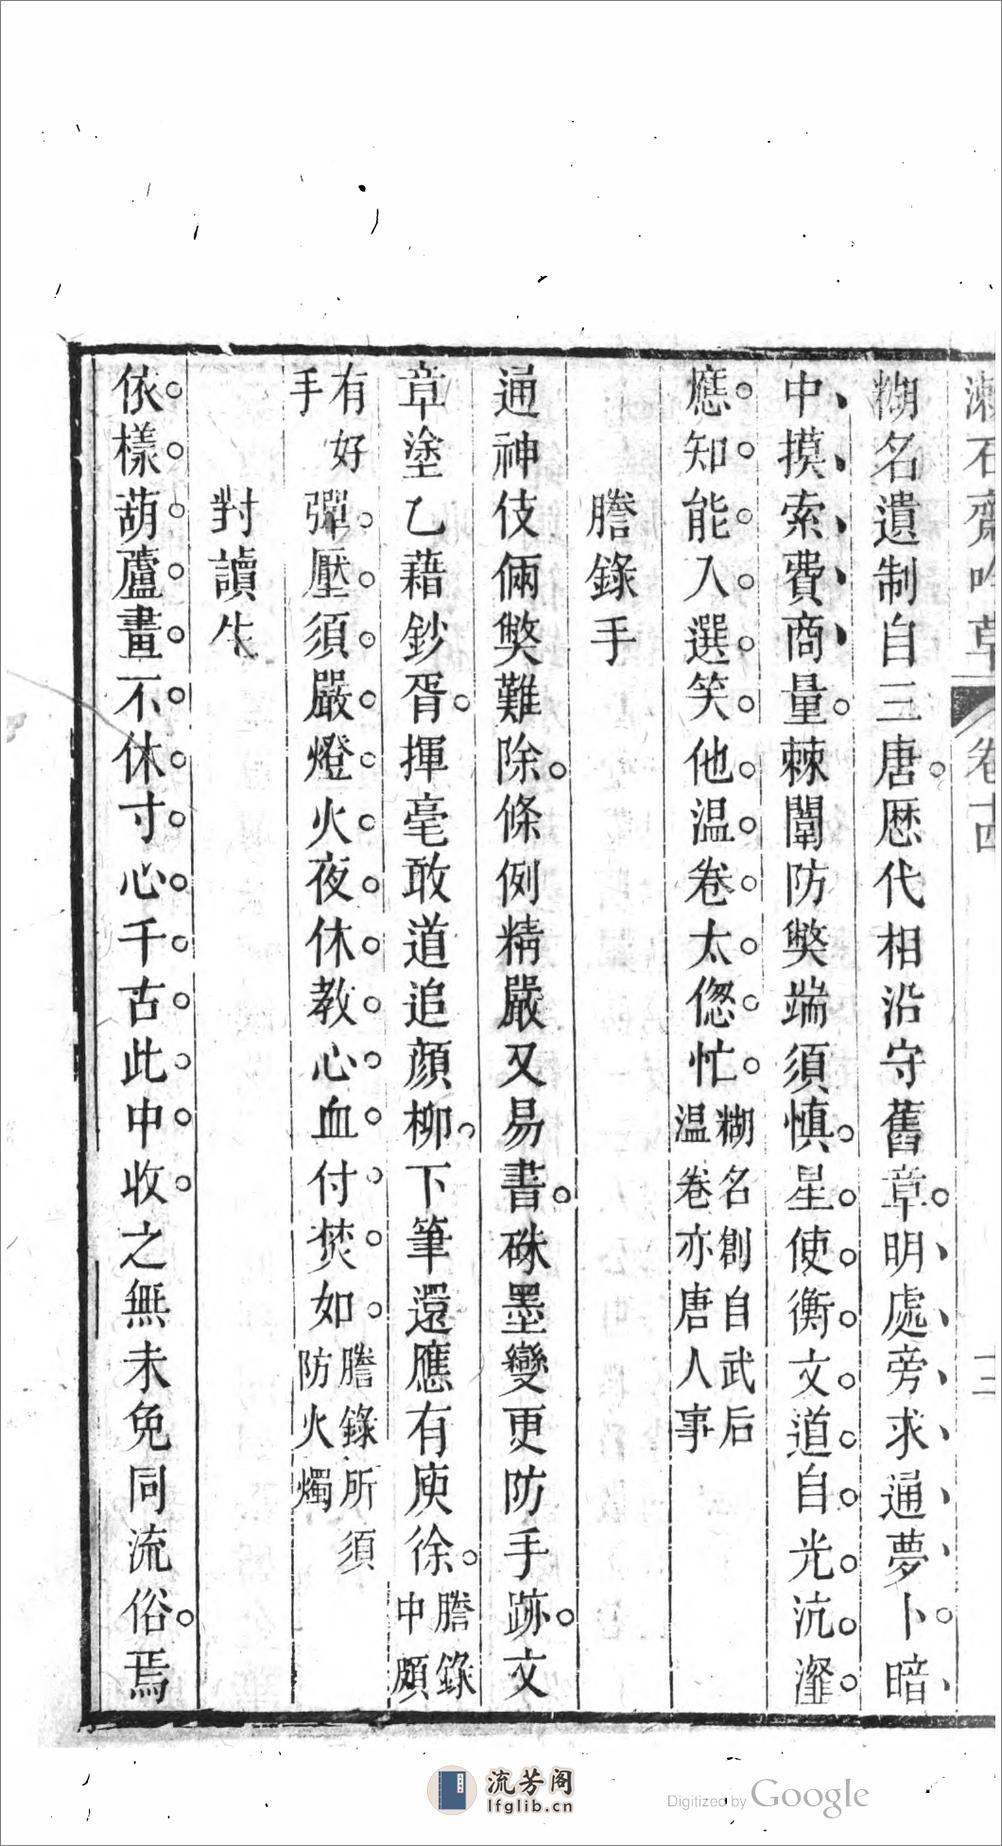 漱石齋吟草 卷古 十二
糊名遺制自三唐歷代相沿守舊章明處旁求通夢卜暗
中摸索費商量棘闈防獘端須慎星使衡文道自光沆瀣
應知能入選笑他温卷太偬忙糊名創自武后温卷亦唐人事
謄錄手
通神伎倆獘難除條例精嚴又易書硃墨變更防手跡文
章塗乙藉鈔胥揮毫敢道追顏柳下筆還應有庾徐謄錄中頗
有好手彈壓須嚴燈火夜休教心血付焚如謄錄所須防火燭
對讀生
依樣葫蘆畫不休寸心千古此中收之無未免同流俗焉
流芳阁
lfglib.cn
Digitized by Google